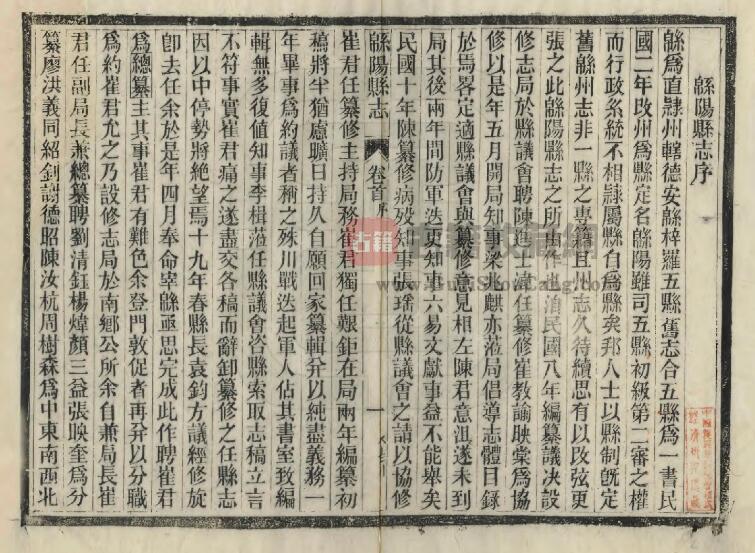 緜陽縣志序
緜爲直隷州轄德安緜梓羅五縣舊志合五縣爲一書民
國二年改州爲縣定名緜陽雖司五縣初級第二審之權
而行政系統不相隷屬縣自爲縣矣邦人士以縣制旣定
舊緜州志非一縣之專籍且州志久待續思有以改弦更
張之此緜陽縣志之所由作也洎民國八年編纂議決設
修志局於縣議會聘陳進士湋任纂修崔教諭映棠爲協
修以是年五月開局知事梁麒亦蒞局倡導志體目錄
於焉畧定適縣議會與纂修意見相左陳君意沮遂未到
局其後兩年間防軍迭更知事六易文獻事益不能舉矣
民國十年陳纂修病歿知事張瑶從縣議會之請以協修
緜陽縣志 卷首 序 一
崔君任纂修主持局務崔君獨任艱鉅在局兩年編纂初
稿將半猶慮曠日持久自願回家纂輯并以純盡義務一
年畢事爲約議者稱之殊川戰迭起軍人佔其書室致編
輯無多復値知事李楫蒞任縣議會咨縣索取志稿立言
不符事實崔君痛之遂盡交各稿而辭卸纂修之任縣志
因以中停勢將絶望焉十九年春縣長袁鈞方議經修旋
卽去任余於是年四月奉命宰緜亟思完成此作聘崔君
爲總纂主其事崔君有難色余登門敦促者再幷以分職
爲約崔君允之乃設修志局於南鄉公所余自兼局長崔
君任副局長兼總纂聘劉清鈺楊煒顏三益張映奎爲分
纂廖洪義同紹釗謝德昭陳汝杭周樹森爲中東南西北
古籍
www.GuJiShouCang.com